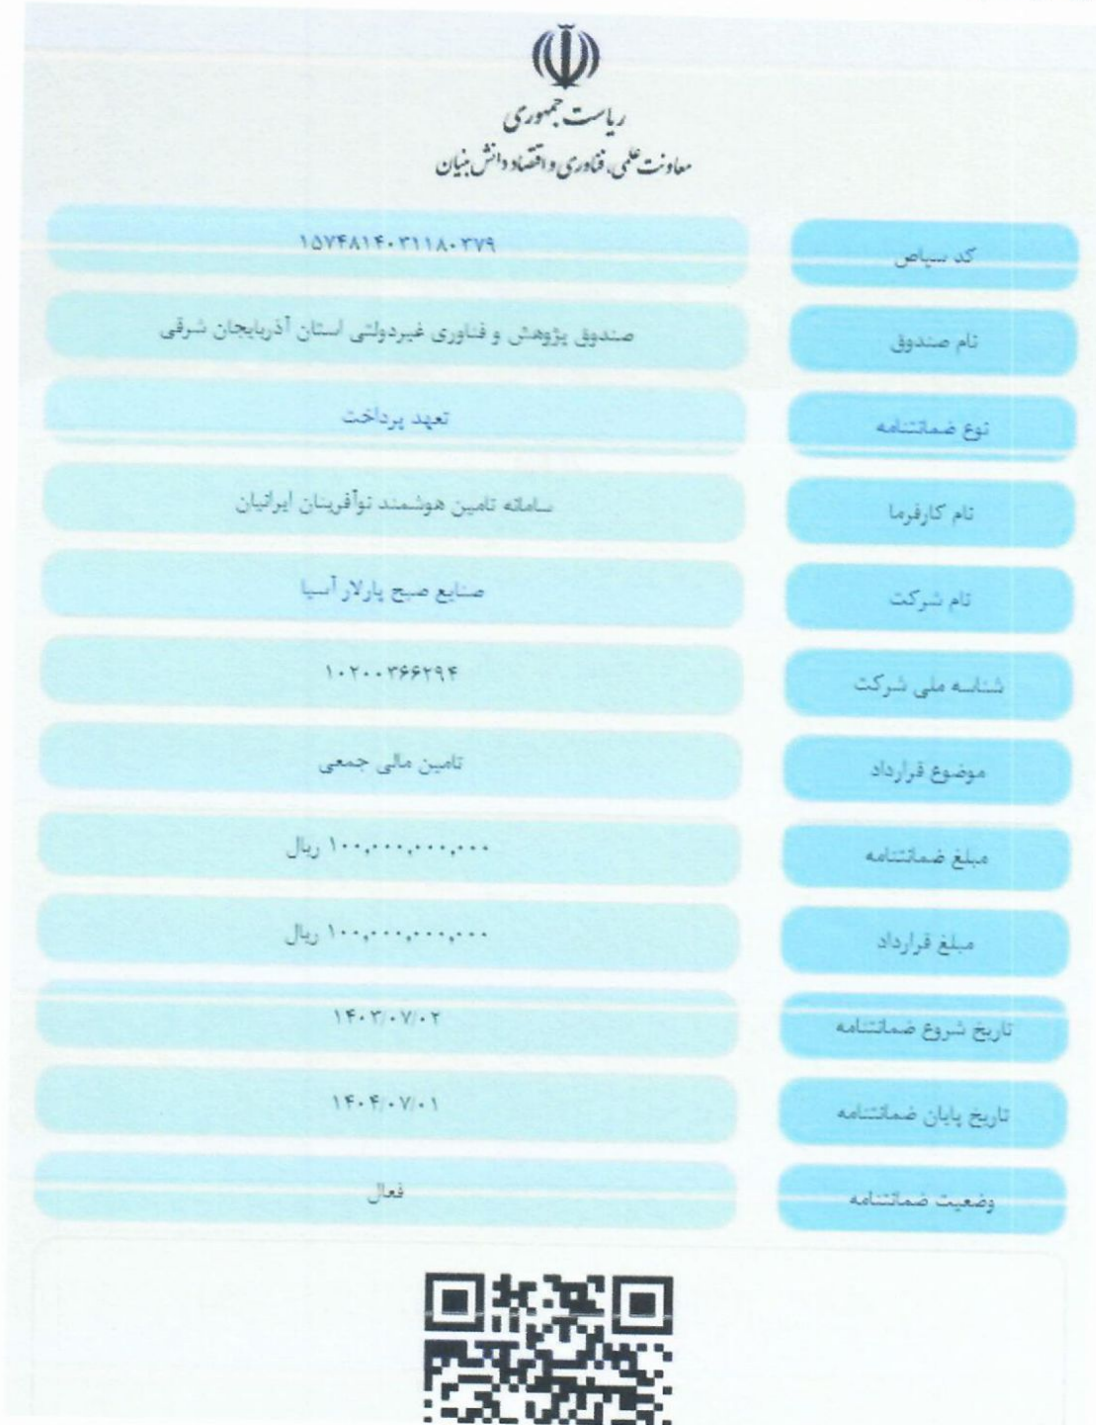 ریاست جمهوری
معاونت علمی، فناوری و اقتصاد دانش بنیان
کد سپاص ۱۵۷۴۸۱۴۰۳۱۱۸۰۳۷۹
نام صندوق صندوق پژوهش و فناوری غیردولتی استان آذربایجان شرقی
نوع ضمانتنامه تعهد پرداخت
نام کارفرما سامانه تامین هوشمند نوآفرینان ایرانیان
نام شرکت صنایع صبح پارلار آسیا
شناسه ملی شرکت ۱۰۲۰۰۳۶۶۲۹۴
موضوع قرارداد تامین مالی جمعی
مبلغ ضمانتنامه ۱۰۰,۰۰۰,۰۰۰,۰۰۰ ریال
مبلغ قرارداد ۱۰۰,۰۰۰,۰۰۰,۰۰۰ ریال
تاریخ شروع ضمانتنامه ۱۴۰۳/۰۷/۰۲
تاریخ پایان ضمانتنامه ۱۴۰۴/۰۷/۰۱
وضعیت ضمانتنامه فعال